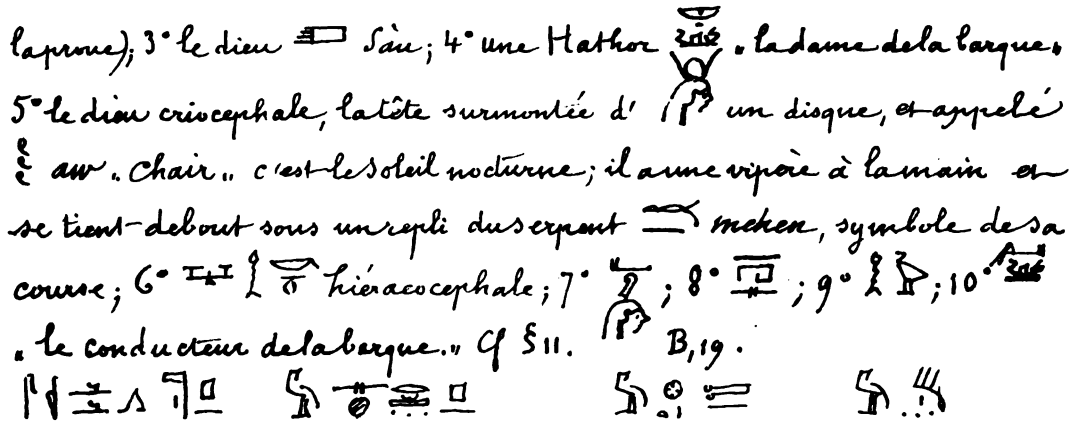 la proue); 3° le dieu Sàu; 4° une Hathor „la dame de la barque„
5° le dieu criocephale, la tête surmontée d' un disque, et appelé
aw „chair„ c'est le soleil nocturne; il a une vipère à la main et
se tient debout sous un repli du serpent mehen, symbole de sa
course; 6° hiéracocephale; 7° ; 8° ; 9° ; 10°
„le conducteur de la barque.„ Cf § 11. B, 19.